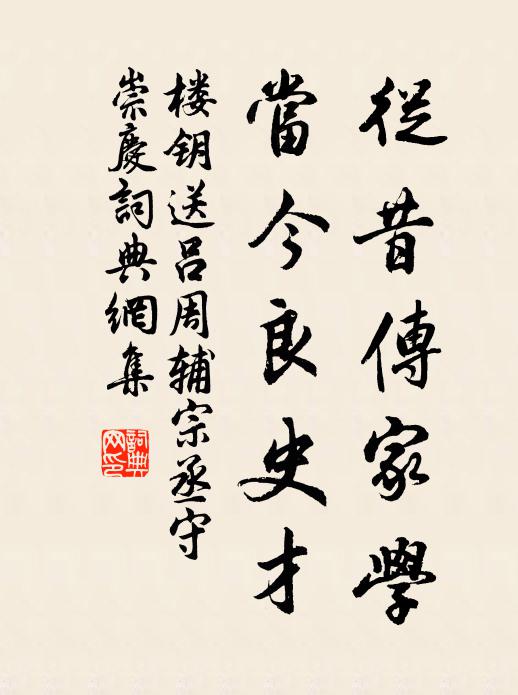 從昔傳家學
當今良史才
楼钥送吕周辅宗丞守
崇慶詞典網集
詞典
网印